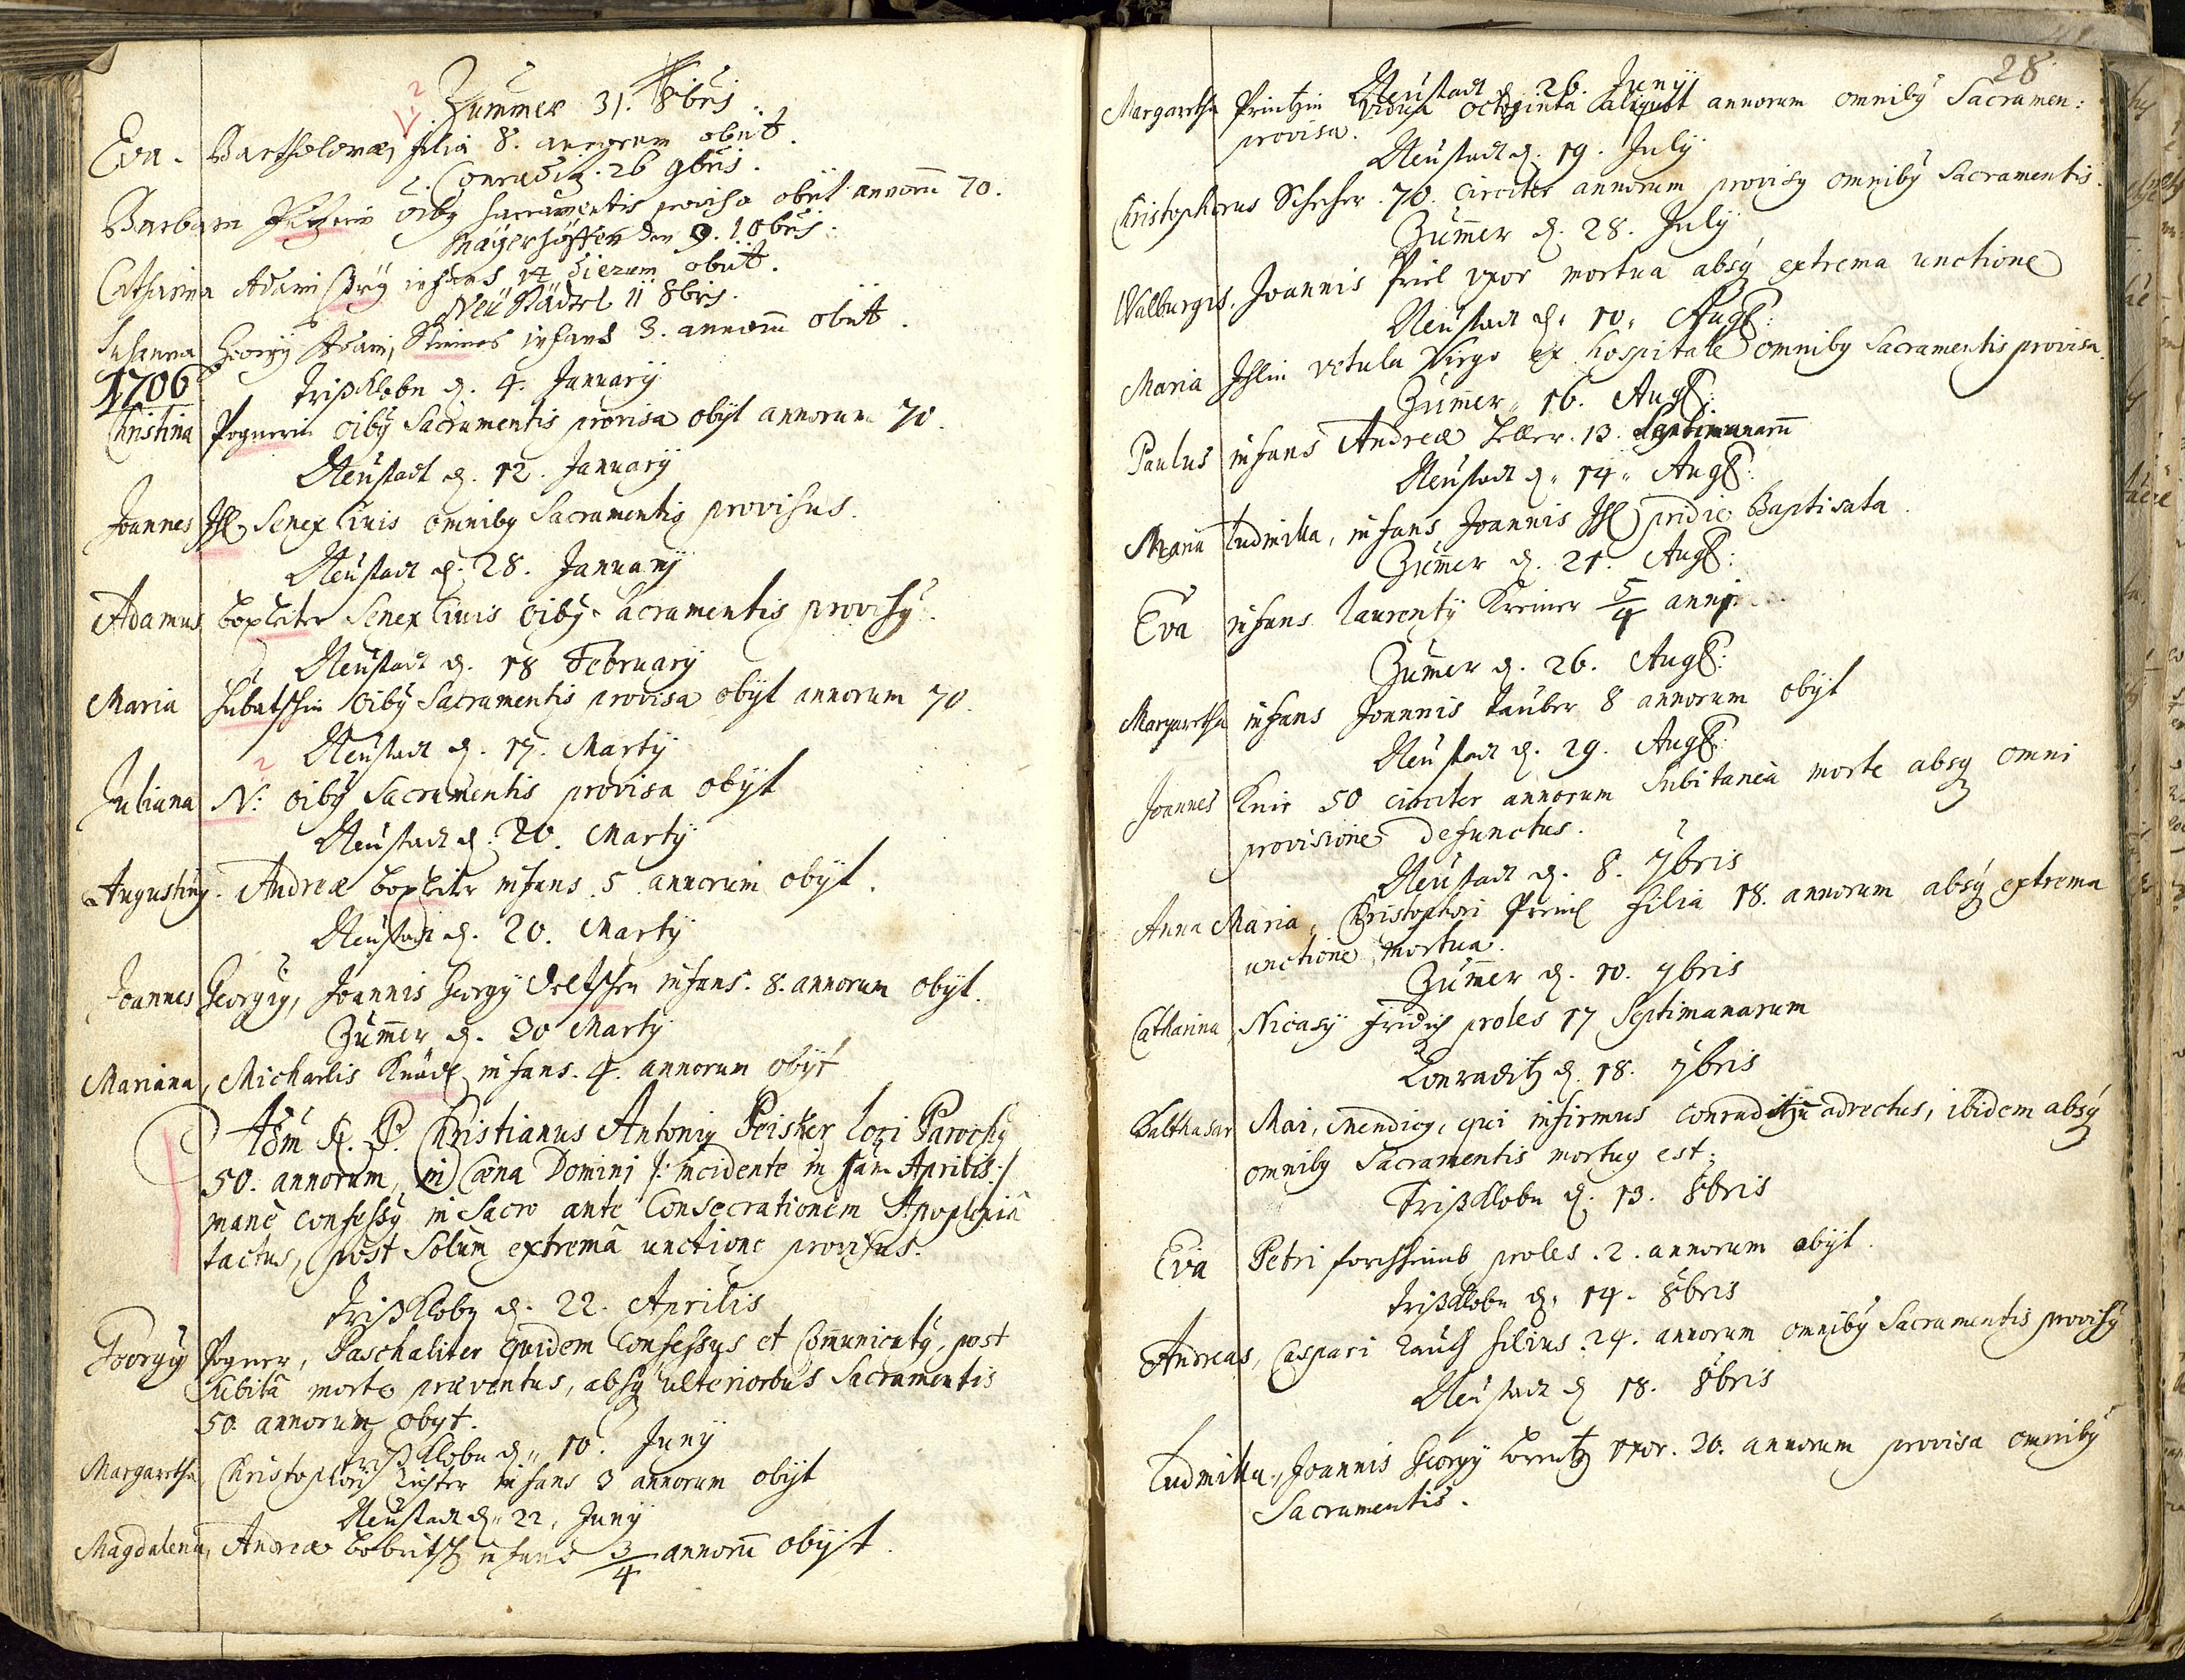 Zummer 31. 8bris.
Eva. Bartholomæi filia 8. annorum obiit.
Conraditz. 26 9bris.
Barbara oiby sacramentis provisa obiit annorū 70.
Mäyerhöffen den 9. 10bris.
Catharina Adami infans 14 dierum obiit.
Neüstädtl 11 8bris.
Susanna Georgij Adami, infans 3. annorū obiit.
1706
Trißklobn d. 4. Januarÿ
Christina Pognerin oibÿ Sacramentis provisa obÿt annorum 70.
Neustadt d. 12. Januarÿ
Joannes Ihl. Senex Civis omniby Sacramentis provisus.
Neustadt d. 28. Januarÿ
Adamus Senex Civis oibÿ Sacramentis provisÿ.
Neustadt d. 18 Februarÿ
Maria Hubatschin oibÿ Sacramentis provisa obÿt annorum 70.
Neustadt d. 17. Martÿ
Juliana N: oibÿ Sacramentis provisa obÿt
Neustadt d. 20. Martÿ
Augustiny. Andreæ infans 5 annorum obÿt.
Neustadt d. 20. Martÿ
Joannes Georgiy, Joannis Georgÿ infans. 8. annorum obÿt.
Zum̄er d. 20 Martÿ
Mariana, Michaelis infans. 4. annorum obÿt
Adm R. P. Christianus Antoniy Peisker loci Parochy
50. annorum, in Cæna Domini /: incidente in Aprilis :/
manè Confessÿ in Sacro ante Consecrationem Apoplexiâ
tactus, post Solùm extremâ unctione provisus.
Trißklobn d. 22. Aprilis
Georgiÿ Pogner, Paschaliter quidem Confessus et Com̄unicatÿ, post
Subitâ morte præventus, absq ulterioribus Sacramentis
50. annorum obÿt.
Trißklobn d. 10. Junÿ
Margaretha, Christophori Richter infans 3 annorum obÿt
Neustadt d. 22. Junÿ
Magdalena, Andreæ infans 3/4 annorū obÿt.
28
Neustadt d. 26. Junÿ
Margaretha Printzin vidua octoginta aliquot annorum omnibÿ Sacramen:
provisa.
Neustadt d. 19. Julÿ
Christophorus Scheher. 70. circiter annorum provisÿ omnibÿ Sacramentis.
Zum̄er d. 28. Julÿ
Walburgis. Joannis Priel uxor mortua absq extrema unctione
Neustadt d. 10. Aug:
Maria Ihlin vetula Virgo ex hospitale omniby Sacramentis provisa.
Zum̄er. 16. Aug:
Paulus infans Andreæ Zeller. 13. Septimanarū
Neustadt d. 14. Aug:
Maria Ludmilla, infans Joannis Ihl pridie Baptisata.
Zum̄er d. 21. Aug:
Eva infans Laurentÿ Kreiner 5/4 anni
Zum̄er d. 26. Aug:
Margaretha infans Joannis Tauber 8 annorum obÿt
Neustadt d. 29. Aug:
Joannes Knie 50 circiter annorum Subitaneâ morte absq omni
provisione defunctus.
Neustadt d. 8. 7bris
Anna Maria, Christophori filia 18. annorum absq extrema
unctione mortua.
Zum̄er d. 10. 7bris
Catharina, Nicasÿ Fridich proles 17 Septimanarum
Conraditz d. 18. 7bris
Balthasar Mai, mendicy, qui infirmus adrectus, ibidem absq
omniby Sacramentis mortuy est.
Trißklobn d. 13. 8bris
Eva Petri proles. 2. annorum obÿt.
Trißklobn d. 14. 8bris
Andreas, Caspari Rauch filius. 24. annorum omnibÿ Sacramentis provisÿ
Neustadt d 18. 8bris
Ludmilla, Joannis Georgÿ Lorentz uxor. 20. annorum provisa omnibÿ
Sacramentis.